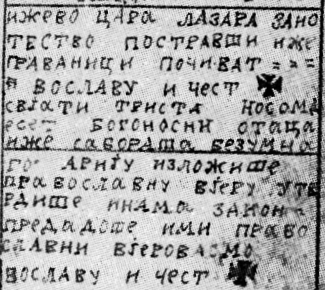 ижево ЦАРА ЛАЗАРА ЗАКО
ТЕСТВО ПОСТРАВШИ ИЖЕ
ГРАВАНИЦИ ПОЧИВАТ = = =
ВОСЛАВУ И ЧЕСТ ✠
СВЈАТИ ТРИСТА НОСОМА
ЕСЕТ БОГОНОСНИ ОТАЦА
ИЖЕ САБОРАША БЕЗУМНА
ГО АРИЈУ ИЗЛОЖИШЕ
ПРАВОСЛАВНУ ВЈЕРУ УТВ
РДИШЕ ИНАМА ЗАКОН
ПРЕДАДОШЕ ИМИ ПРАВО
СЛАВНИ ВЈЕРОВАСМО
ВОСЛАВУ И ЧЕСТ ✠